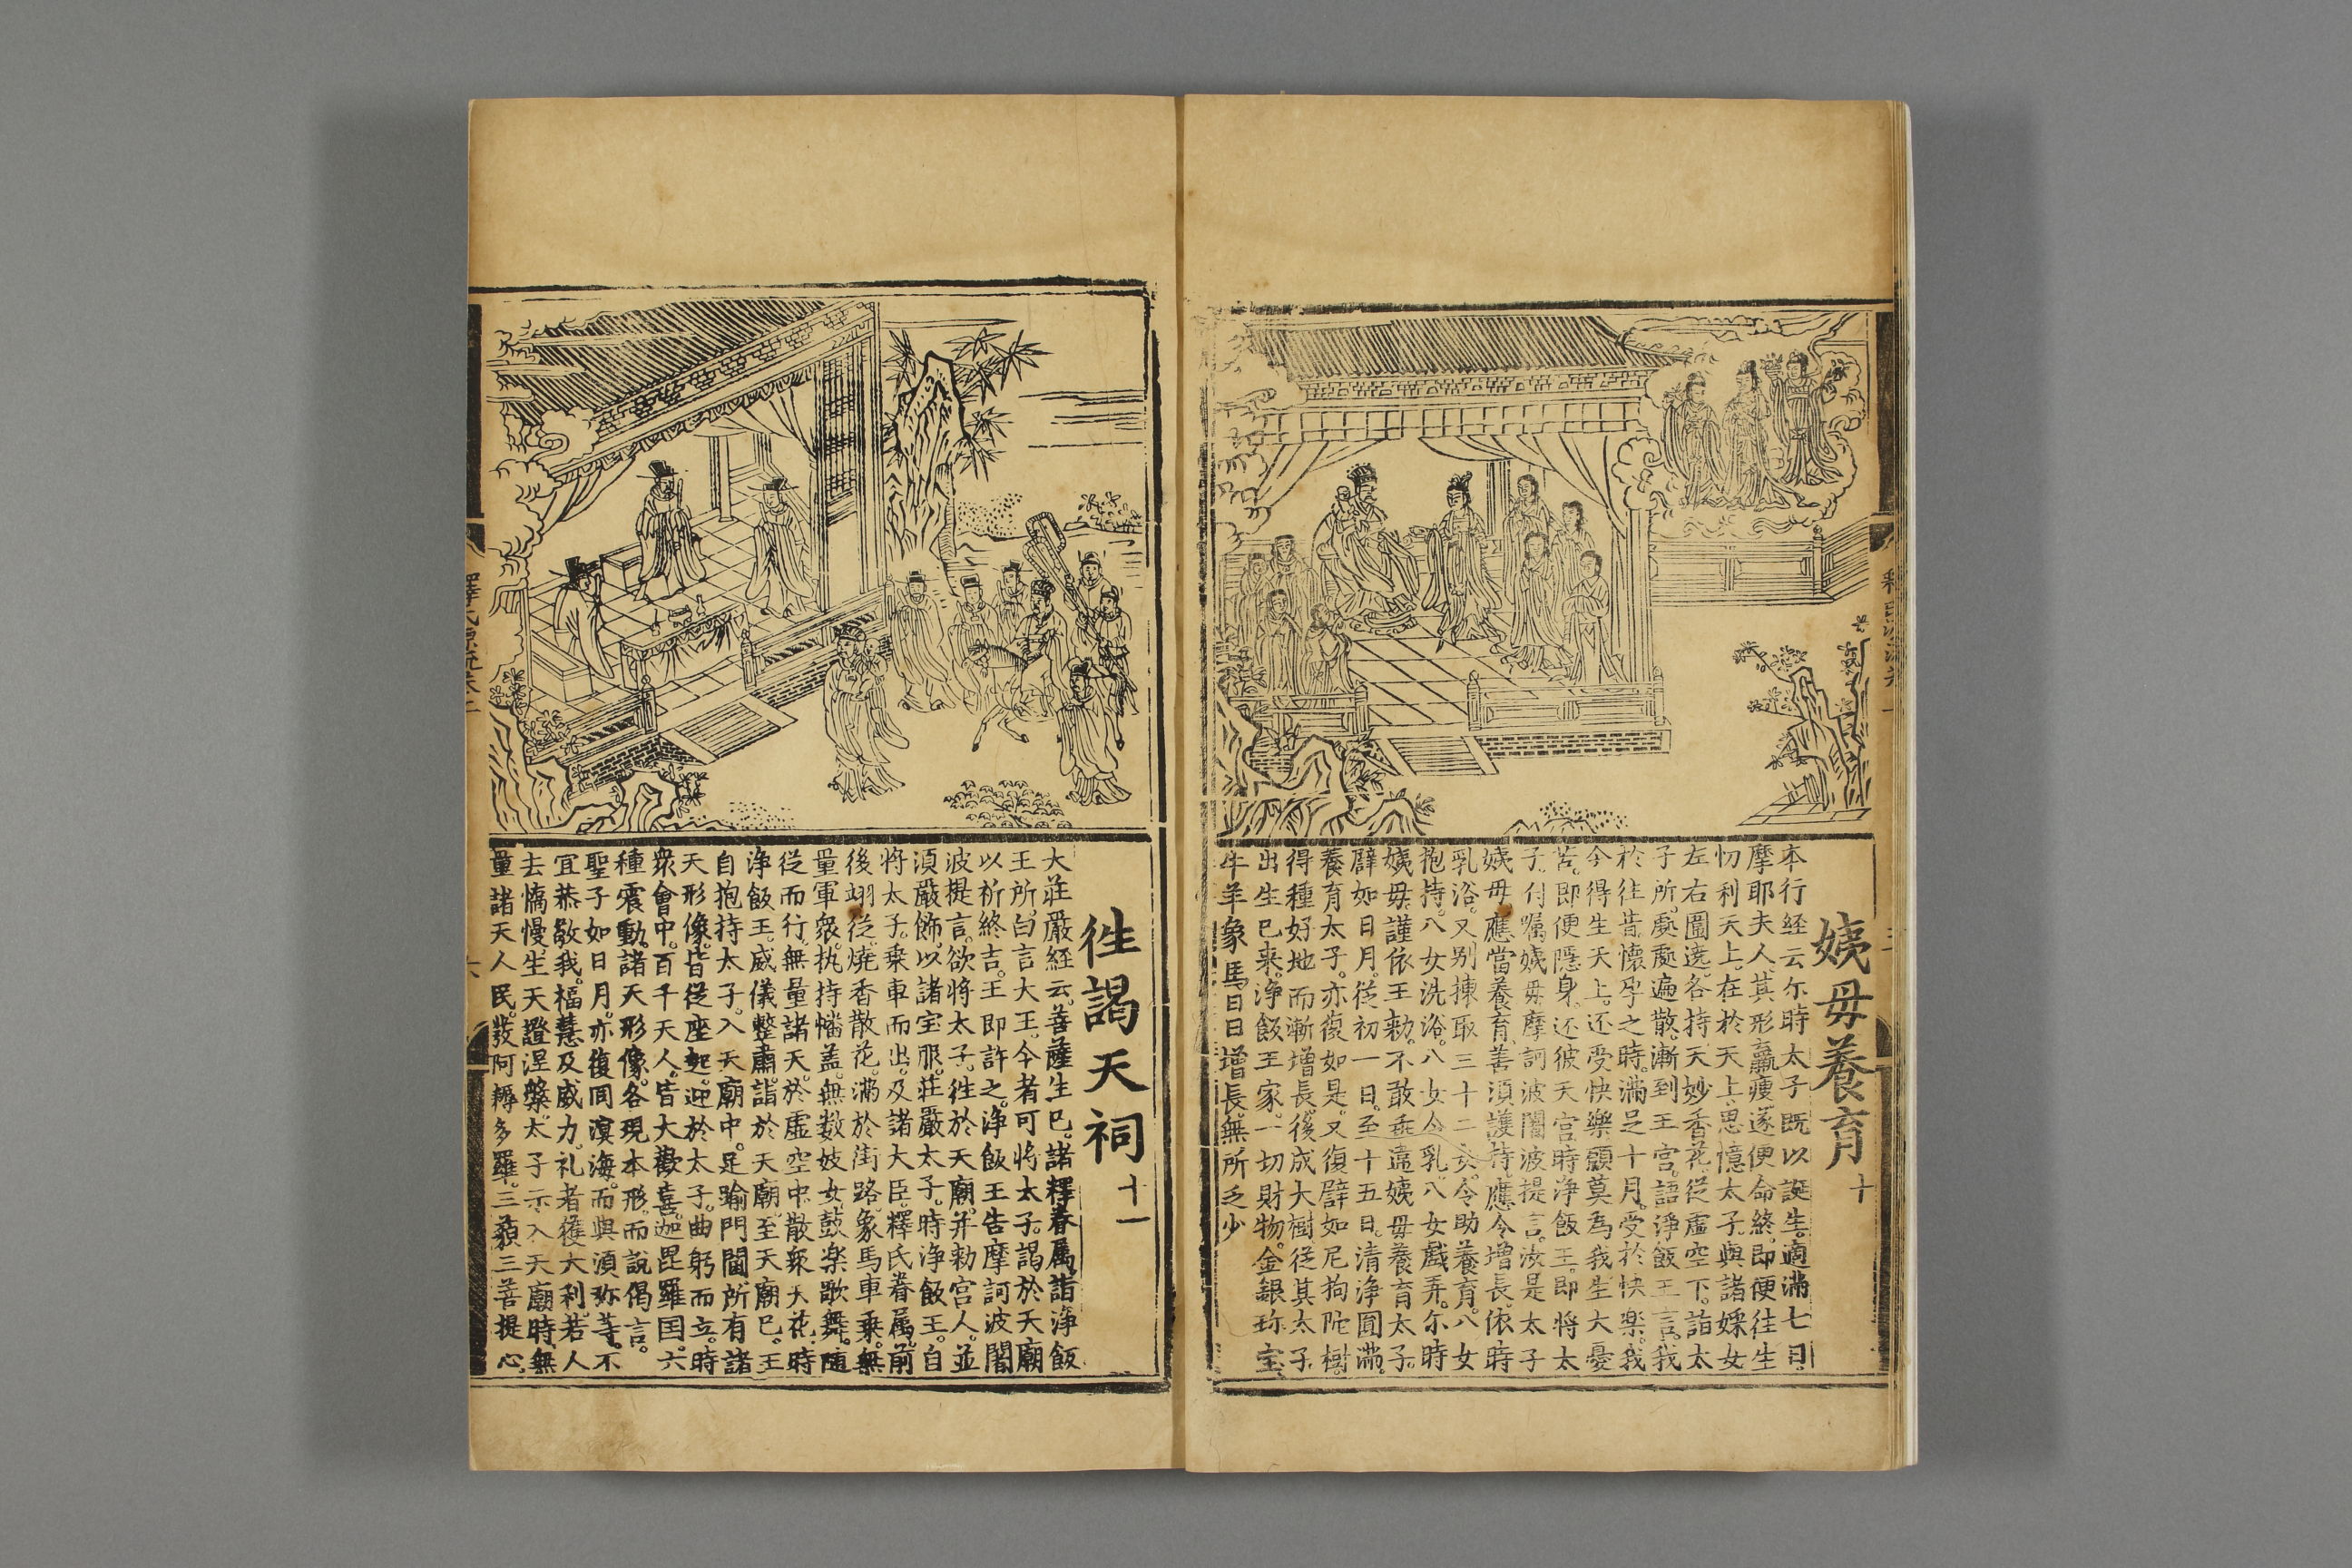 姨母養育 十
本行経云尓時太子既以誕生。適滿七日。
摩耶夫人。其形羸瘦。遂便命終。即便往生
忉利天上。在於天上。思憶太子。與諸婇女
左右圍遶。各持天妙香花。從虛空下。詣太
子所。處處遍散。漸到王宫。語淨飯王言。我
於往昔。懷孕之時。滿足十月。受於快樂。我
今得生天上。还受快樂。願莫為我生大憂
苦。即便隱身。还彼天宫。時淨飯王。即將太
子。付囑姨母摩訶波闍波提言。汝是太子
姨母。應當養育。善須護持。應令增長。依時
乳浴。又別揀取三十二女。令助養育。八女
抱持。八女洗浴。八女令乳。八女戲弄。尓時
姨母。謹依王勑。不敢乖違。姨母養育太子。
譬如日月。從初一日。至十五日。清淨圓滿。
養育太子。亦復如是。又復譬如尼拘陀樹。
得種好地而漸增長。後成大樹。從其太子
出生已来。淨飯王家。一切財物。金銀珎宝。
牛羊象馬。日日增長。無所乏少
徃謁天祠 十一
大莊嚴経云。菩薩生已。諸釋眷屬。詣淨飯
王所。白言大王。今者可將太子。謁於天廟
以祈終吉。王即許之。淨飯王告摩訶波闍
波提言。欲將太子。徃於天廟。并勑宫人。並
須嚴飾。以諸宝服。莊嚴太子。時淨飯王。自
將太子。乗車而出。及諸大臣。釋氏眷屬。前
後翊從。燒香散花。滿於街路。象馬車乗。無
量軍衆。执持幡盖。無数妓女。鼓楽歌舞。随
從而行。無量諸天。於虛空中。散衆天花。時
淨飯王。威儀整肅。詣於天廟。至天廟已。王
自抱持太子。入天廟中。足踰門閫。所有諸
天形像。皆從座起。迎於太子。曲躬而立。時
衆會中。百千天人。皆大歡喜。迦毘羅国。六
種震動。諸天形像。各現本形。而說偈言。
聖子如日月。亦復同溟海。而與須弥等。不
宜恭敬我。福慧及威力。礼者獲大利。若人
去憍慢。生天證涅槃。太子示入天廟時。無
量諸天人民。發阿耨多羅。三藐三菩提心。
釋氏源流卷一
六